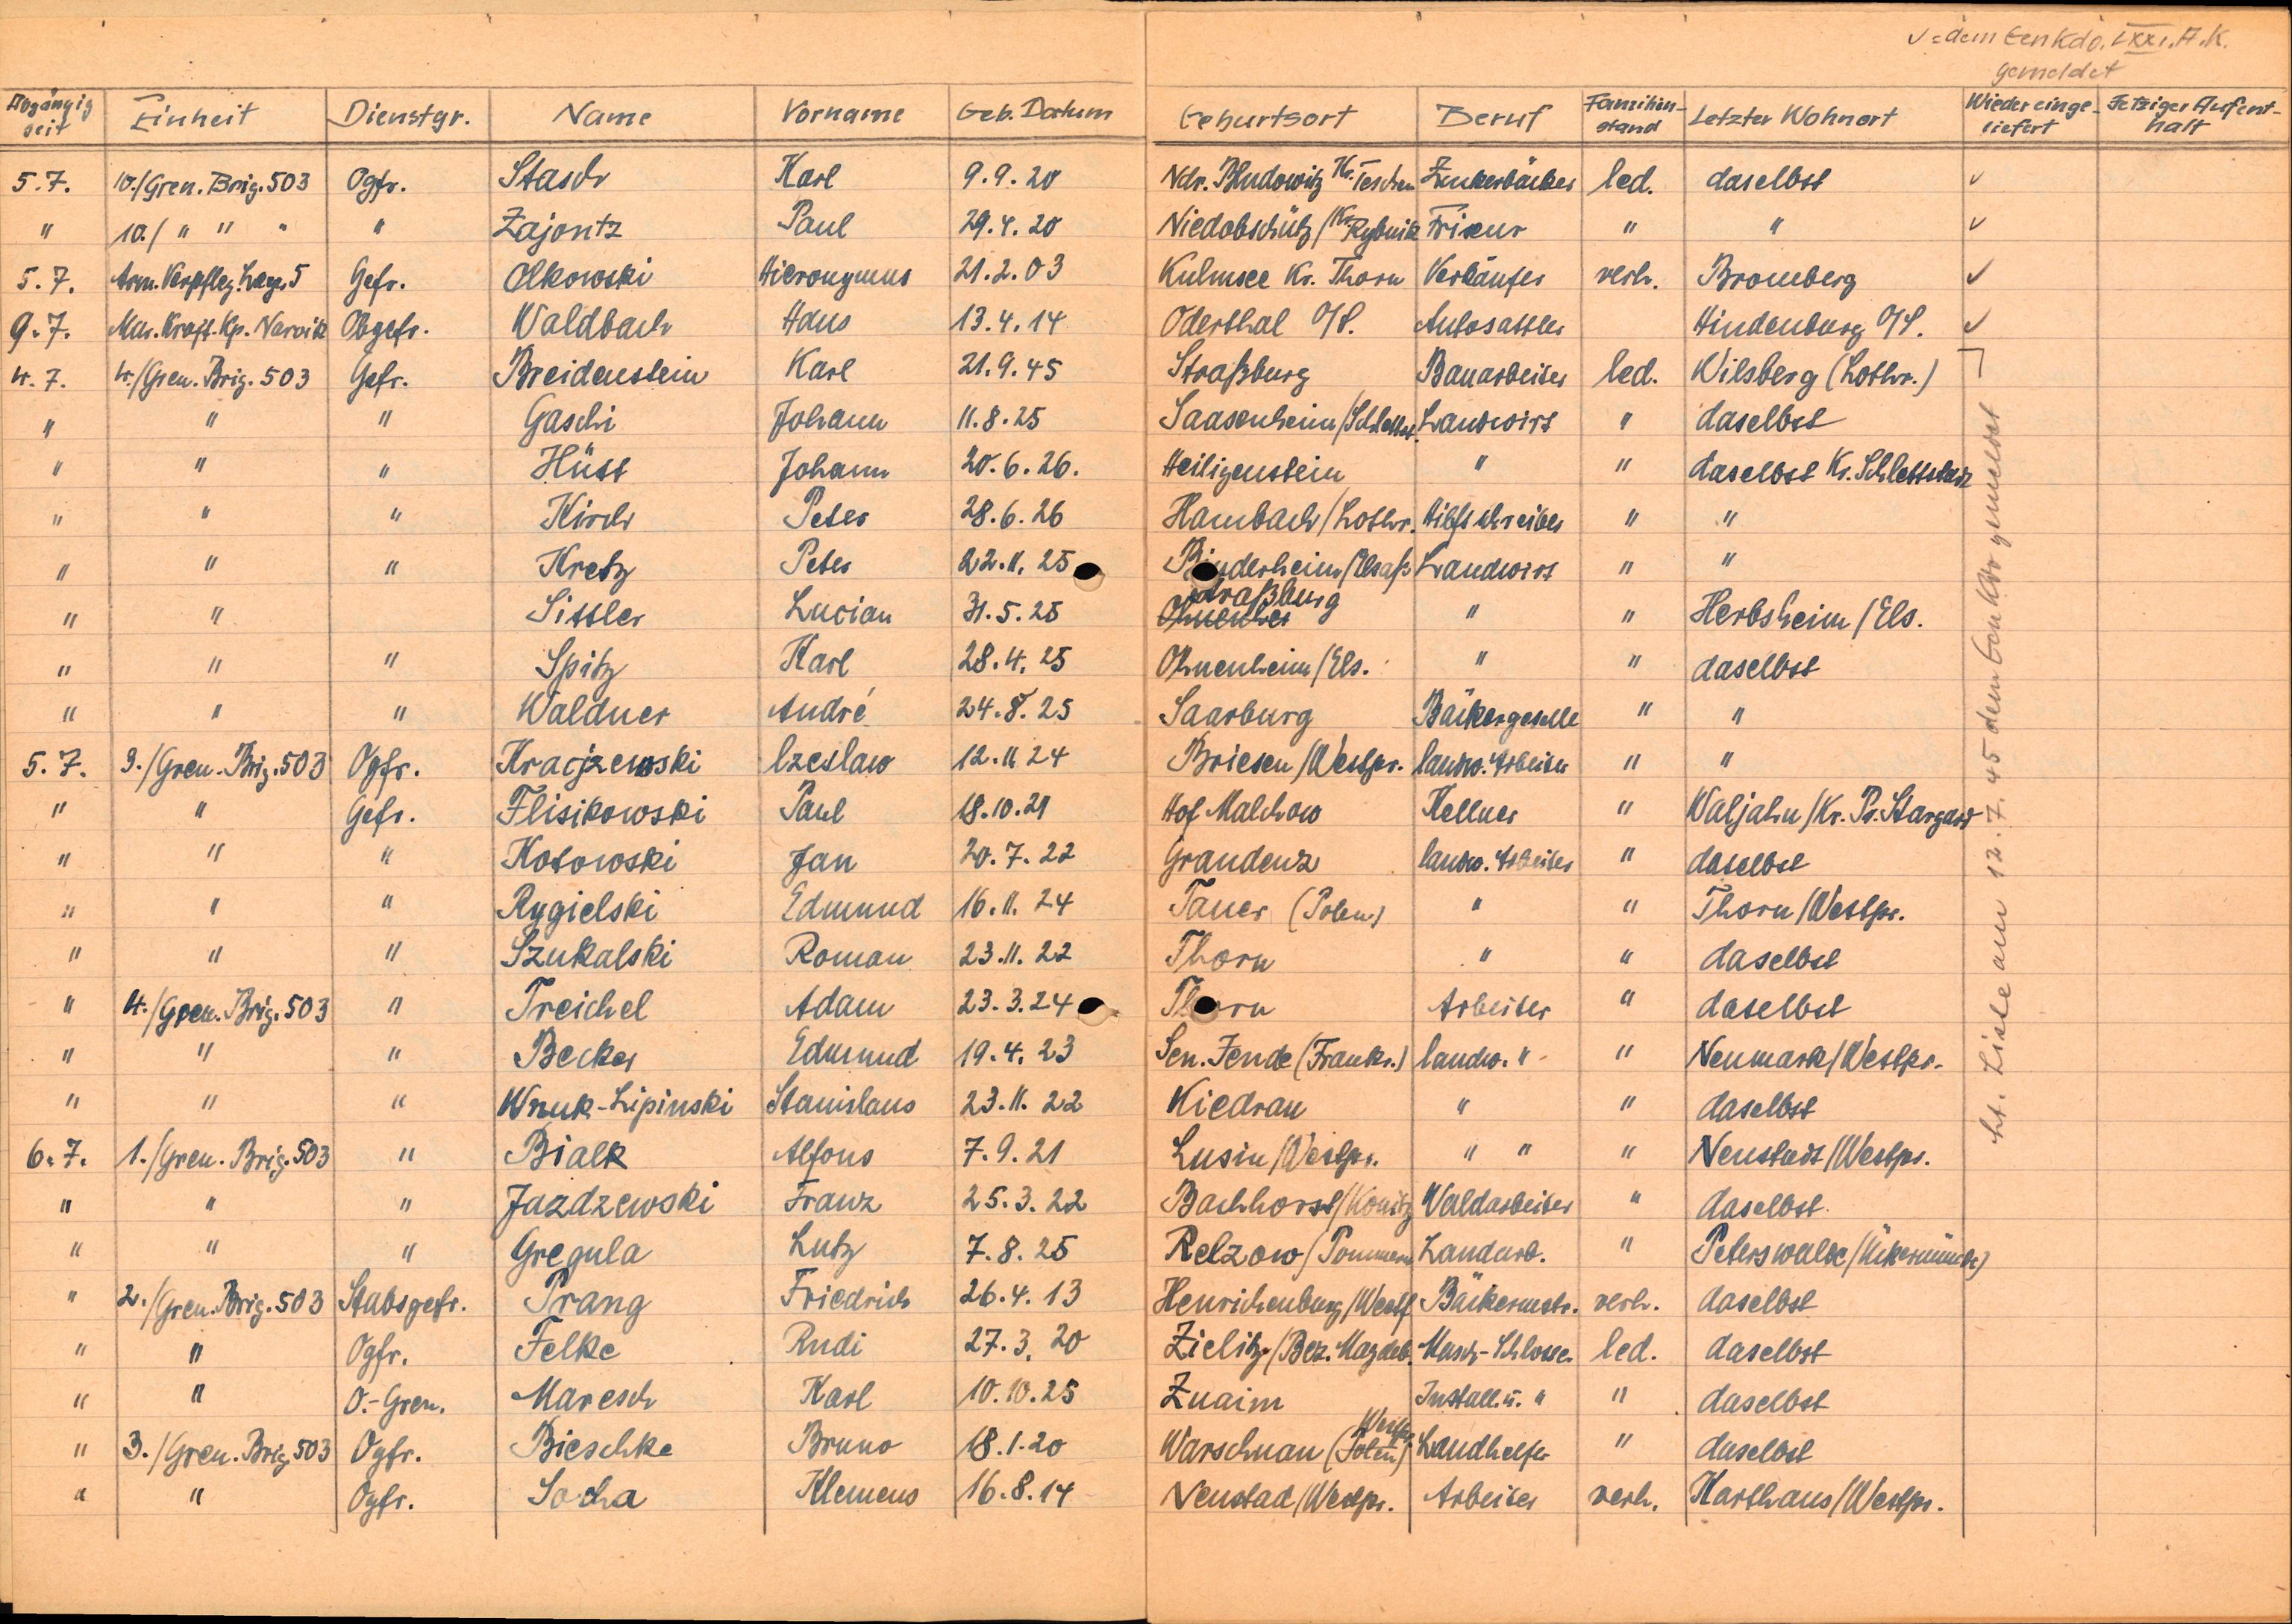 v = dem Gen Kdo. LXXI. A.K.
gemeldet
Abgängig seit Einheit Dienstgr. Name Vorname Geb. Datum Geburtsort Beruf Familienstand Letzter Wohnort Wiedereingeliefert Jetziger Aufenthalt
5.7. 10./Gren. Brig. 503 Ogfr. Stasch Karl 9.9.20 Ndr. Bludowitz Kr. Teschen Zuckerbäcker led. daselbst ✓
" 10./ " " " " Zajontz Paul 29.4.20 Niedobschütz/Kr. Rybnik Friseur " " ✓
5.7. Arm. Verpfleg. Lager 5 Gefr. Olkowski Hieronymus 21.2.03 Kulmsee Kr. Thorn Verkäufer verh. Bromberg ✓
9.7. Mar. Kraft. Kp. Narvik Obgefr. Waldbach Hans 13.4.14 Oderthal O/S. Autosattler Hindenburg O/S. ✓
4.7. 4./Gren. Brig. 503 Gefr. Breidenstein Karl 21.9.45 Straßburg Bauarbeiter led. Wilsberg (Lothr.)
" " " Gaschi Johann 11.8.25 Saasenheim/Schlettst. Landwirt " daselbst
" " " Hüst Johann 20.6.26. Heiligenstein " " daselbst Kr. Schlettstadt
" " " Kirch Peter 28.6.26 Hambach/Lothr. Hilfsschreiber " "
" " " Kretz Peter 22.11.25 Binderheim/Elsaß Landwirt " "
" " Sittler Lucian 31.5.25 Straßburg " " Herbsheim/Els.
" " " Spitz Karl 28.4.25 Ohnenheim/Els. " " daselbst
" " " Waldner André 24.8.25 Saarburg Bäckergeselle " "
5.7. 3./Gren. Brig. 503 Ogfr. Kracjzewski Czeslaw 12.11.24 Briesen/Westpr. landw. Arbeiter " "
" " Gefr. Flisikowski Paul 18.10.21 Hof Malchow Kellner " Waljahn/Kr. Pr. Stargard
" " " Kotowski Jan 20.7.22 Graudenz landw. Arbeiter " daselbst
" " " Rygielski Edmund 16.11.24 Tauer (Polen) " " Thorn/Westpr.
" " " Szukalski Roman 23.11.22 Thorn " " daselbst
" 4./Gren. Brig. 503 " Treichel Adam 23.3.24 Thorn Arbeiter " daselbst
" " " Becker Edmund 19.4.23 Sen. Jende (Frankr.) landw. " " Neumark/Westpr.
" " " Wnuk-Lipinski Stanislaus 23.11.22 Kiedrau " " daselbst
6.7. 1./Gren. Brig. 503 " Bialk Alfons 7.9.21 Lusin/Westpr. " " " Neustadt/Westpr.
" " " Jazdzewski Franz 25.3.22 Bachhorst/Konitz Waldarbeiter " daselbst
" " " Gregula Lutz 7.8.25 Relzow/Pommern Landarb. " Peterswalde/Ückermünde)
" 2./Gren. Brig. 503 Stabsgefr. Prang Friedrich 26.4.13 Henrichenburg/Westf. Bäckermstr. verh. daselbst
" " Ogfr. Felke Rudi 27.3.20 Zielitz/Bez. Magdeb. Masch-Schlosser led. daselbst
" " O.-Gren. Maresch Karl 10.10.25 Znaim Install. u. " " daselbst
" 3./Gren. Brig. 503 Ogfr. Bieschke Bruno 18.1.20 Warschnau (Polen) Westpr. Landhelfer " daselbst
" " Ogfr. Socha Klemens 16.8.14 Neustad/Westpr. Arbeiter verh. Karthaus/Westpr.
lt. Liste am 12.7.45 dem Gen Kdo gemeldet